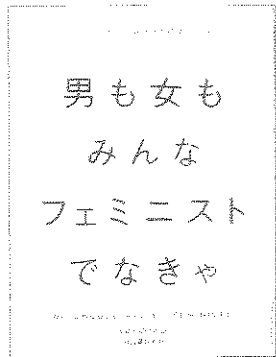 男も女も
みんな
フェミニスト
でなきゃ